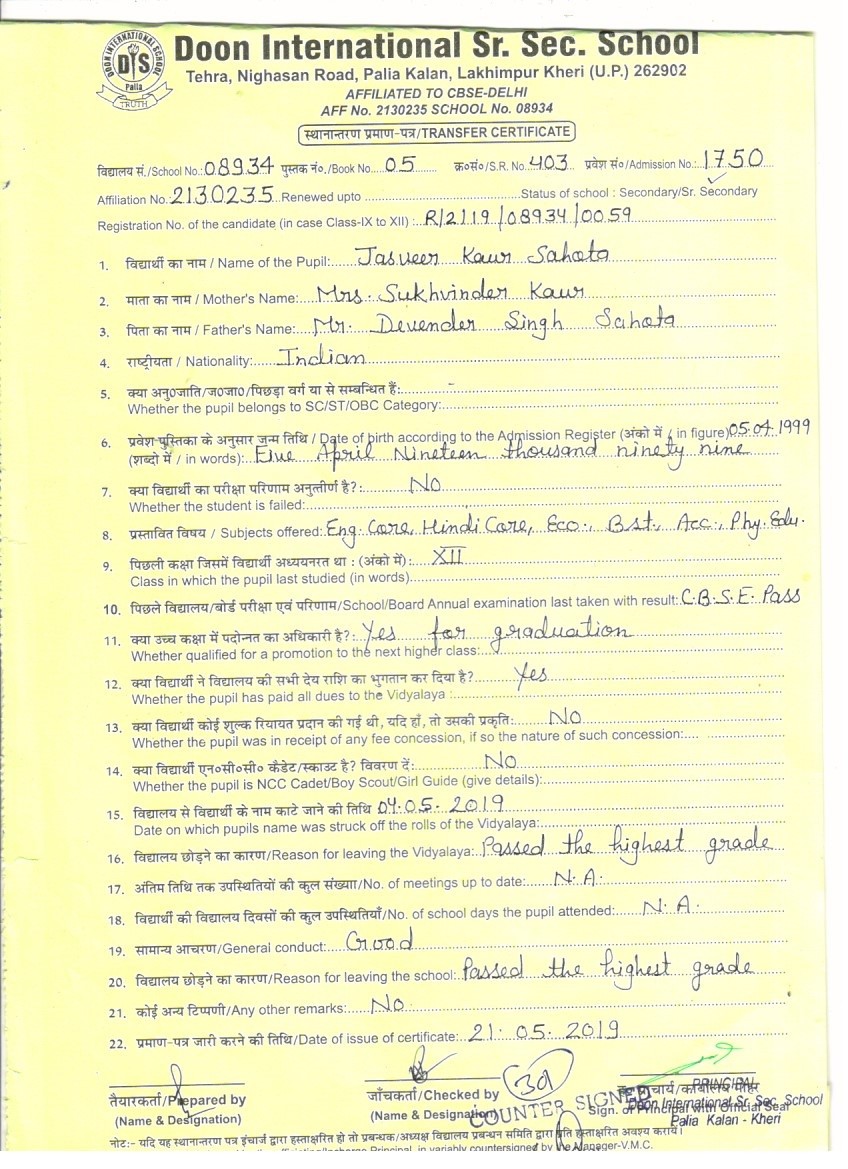 DOON INTERNATIONAL SCHOOL
DIS
Palia
TRUTH
Doon International Sr. Sec. School
Tehra, Nighasan Road, Palia Kalan, Lakhimpur Kheri (U.P.) 262902
AFFILIATED TO CBSE-DELHI
AFF No. 2130235 SCHOOL No. 08934
स्थानान्तरण प्रमाण-पत्र/TRANSFER CERTIFICATE
विद्यालय सं./School No.: 08934 पुस्तक नं०./Book No. 05 क्र०सं०/S.R. No. 403 प्रवेश सं०/Admission No.: 1750
Affiliation No. 2130235 Renewed upto Status of school : Secondary/Sr. Secondary
Registration No. of the candidate (in case Class-IX to XII) : R/2119/08934/0059
1. विद्यार्थी का नाम / Name of the Pupil: Jasveer Kaur Sahota
2. माता का नाम / Mother's Name: Mrs. Sukhvinder Kaur
3. पिता का नाम / Father's Name: Mr. Devender Singh Sahota
4. राष्ट्रीयता / Nationality: Indian
5. क्या अनु०जाति/ज०जा०/पिछड़ा वर्ग या से सम्बन्धित हैं: -
Whether the pupil belongs to SC/ST/OBC Category:
6. प्रवेश-पुस्तिका के अनुसार जन्म तिथि / Date of birth according to the Admission Register (अंको में / in figure) 05.04.1999
(शब्दो में / in words): Five April Nineteen thousand ninety nine
7. क्या विद्यार्थी का परीक्षा परिणाम अनुत्तीर्ण है?: No
Whether the student is failed:
8. प्रस्तावित विषय / Subjects offered: Eng. Core, Hindi Core, Eco., Bst., Acc., Phy. Edu.
9. पिछली कक्षा जिसमें विद्यार्थी अध्ययनरत था : (अंको में): XII
Class in which the pupil last studied (in words)
10. पिछले विद्यालय/बोर्ड परीक्षा एवं परिणाम/School/Board Annual examination last taken with result: C.B.S.E. Pass
11. क्या उच्च कक्षा में पदोन्नत का अधिकारी है?: Yes for graduation
Whether qualified for a promotion to the next higher class:
12. क्या विद्यार्थी ने विद्यालय की सभी देय राशि का भुगतान कर दिया है? Yes
Whether the pupil has paid all dues to the Vidyalaya :
13. क्या विद्यार्थी कोई शुल्क रियायत प्रदान की गई थी, यदि हाँ, तो उसकी प्रकृति: No
Whether the pupil was in receipt of any fee concession, if so the nature of such concession:
14. क्या विद्यार्थी एन०सी०सी० कैडेट/स्काउट है? विवरण दें: No
Whether the pupil is NCC Cadet/Boy Scout/Girl Guide (give details):
15. विद्यालय से विद्यार्थी के नाम काटे जाने की तिथि 04.05.2019
Date on which pupils name was struck off the rolls of the Vidyalaya:
16. विद्यालय छोड़ने का कारण/Reason for leaving the Vidyalaya: Passed the highest grade
17. अंतिम तिथि तक उपस्थितियों की कुल संख्या/No. of meetings up to date: N.A.
18. विद्यार्थी की विद्यालय दिवसों की कुल उपस्थितियाँ/No. of school days the pupil attended: N.A.
19. सामान्य आचरण/General conduct: Good
20. विद्यालय छोड़ने का कारण/Reason for leaving the school: Passed the highest grade
21. कोई अन्य टिप्पणी/Any other remarks: No
22. प्रमाण-पत्र जारी करने की तिथि/Date of issue of certificate: 21.05.2019
तैयारकर्ता/Prepared by
(Name & Designation)
जाँचकर्ता/Checked by
(Name & Designation)
COUNTER SIGNED
PRINCIPAL
Sign. of Principal with Official Seal
Doon International Sr. Sec. School
Palia Kalan - Kheri
नोट:- यदि यह स्थानान्तरण पत्र इंचार्ज द्वारा हस्ताक्षरित हो तो प्रबन्धक/अध्यक्ष विद्यालय प्रबन्धन समिति द्वारा प्रति हस्ताक्षरित अवश्य करायें।
Principal, in variably countersigned by the Manager-V.M.C.